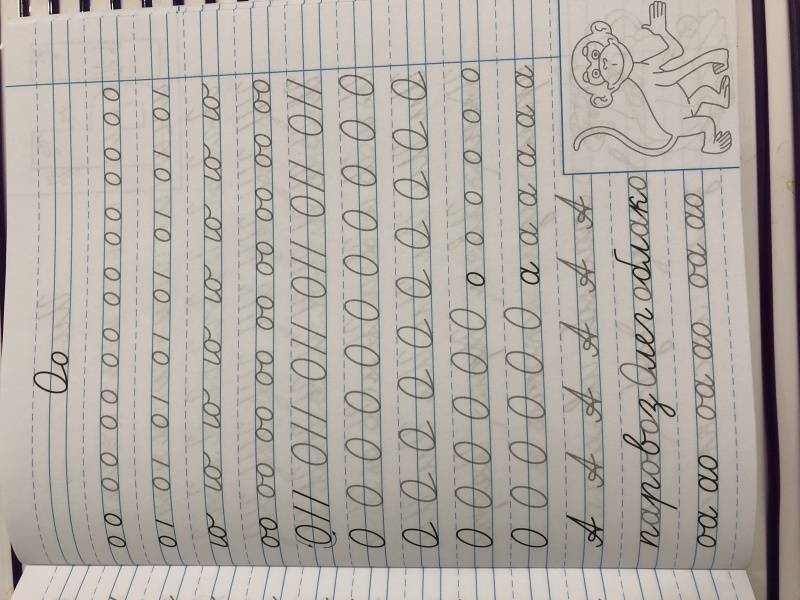 Оо
оо оо оо оо оо оо оо оо
о/ о/ о/ о/ о/ о/ о/ о/
о о о о о о о о
оо оо оо оо оо оо оо оо
О// О// О// О// О// О//
О О О О О О О О О О О О
О О О О О О О О О О
О О О О О О о о о о о о
О О О О О О а а а а а а
А А А А А А
паровоз Олег облако
оа ао оа ао оа ао